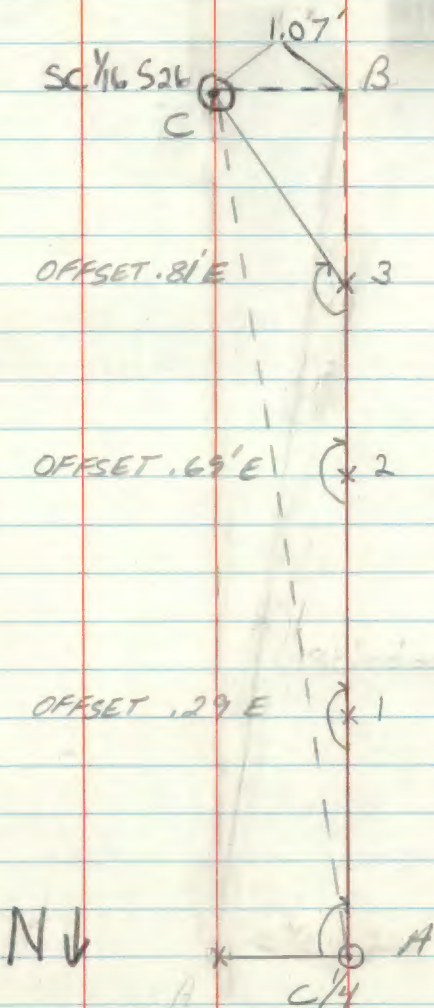 1.07'
SC 1/16 S26
B
C
OFFSET .81'E
3
OFFSET .69'E
2
OFFSET .29 E
1
N
A
C 1/4